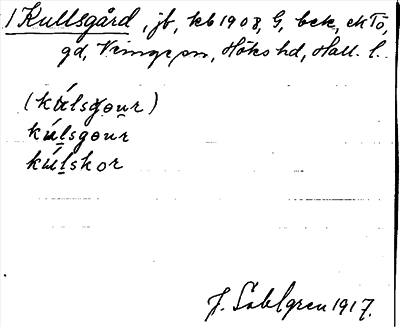 1 Kullsgård, jb, kb 1908, G, bek, ek Tö,
gd, Veinge sn, Höks hd, Hall. l.
(kúlsgɵu̠r)
kúl̠sgɵu̠r
kúl̠skor
J. Sahlgren 1917.